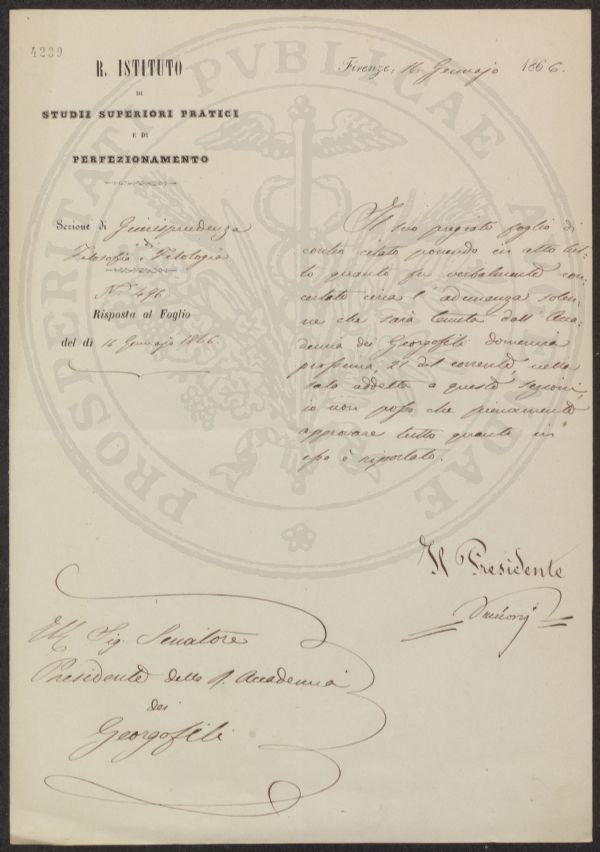 4239
R. ISTITUTO
DI
STUDII SUPERIORI PRATICI
E DI
PERFEZIONAMENTO
Firenze, 16 Gennajo 1866.
Sezione di Giurisprudenza
di
Filosofia e Filologia
N.° 496
Risposta al Foglio
del dì 16 Gennajo 1866.
Il suo pregiato foglio di
contro citato ponendo in atto
quanto fu verbalmente con-
certato circa l'adunanza solen-
ne che sarà tenuta dall'Acca-
demia dei Georgofili domenica
prossima 21 del corrente nella
sala addetta a questa sezione,
io non posso che pienamente
approvare tutto quanto in
esso è riportato.
Il Presidente
Ill. Sig. Senatore
Presidente della R. Accademia
dei
Georgofili
PROSPERITATI PVBLICAE AVGENDAE